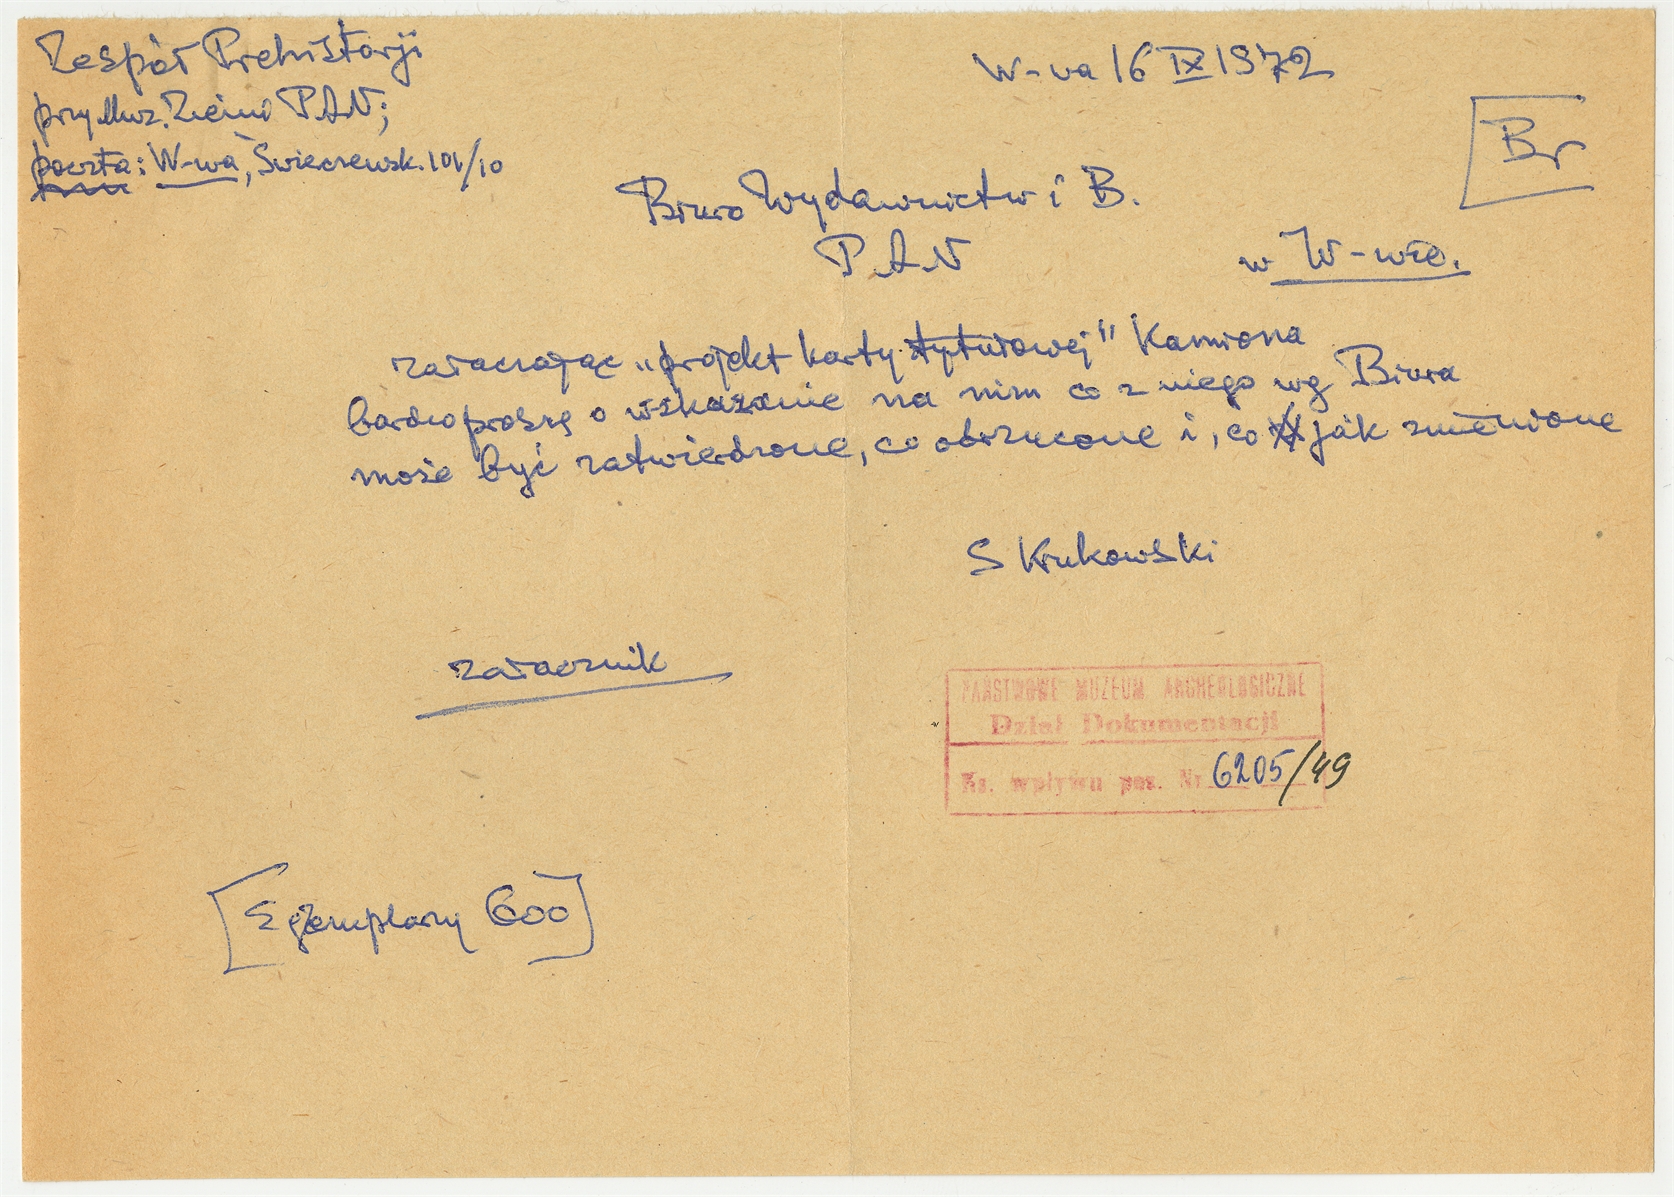 Zespół Prehistorji
przy Muz. Ziemi PAN;
poczta: W-wa, Świerczewsk. 101/10
W-wa 16 IX 1972
Br
Biuro Wydawnictw i B.
PAN
w W-wie.
załączając „projekt karty tytułowej" Kamiona
bardzo proszę o wskazanie na nim co z niego wg Biura
może być zatwierdzone, co odrzucone i, co jak zmienione
S Krukowski
załącznik
PAŃSTWOWE MUZEUM ARCHEOLOGICZNE
Dział Dokumentacji
Ks. wpływu poz. Nr 6205/49
[Egzemplarzy 600]